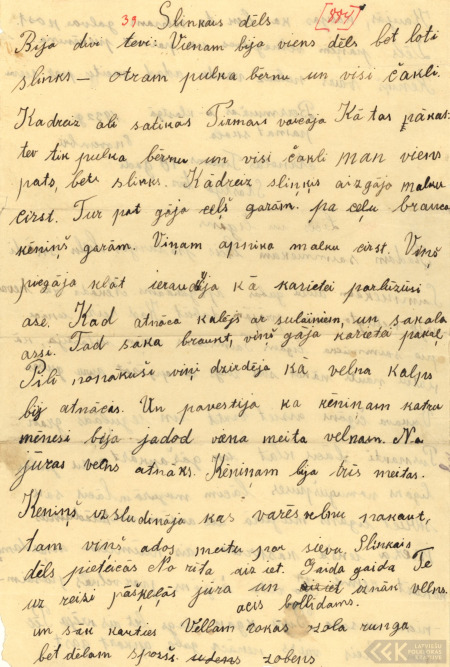 33 Slinkais dēls [884]
Bija divi tēvi: Vienam bija viens dēls bet ļoti
slinks — otram pulka bērnu un visi čakli.
Kādreiz abi satikās Pirmais vaicāja Kā tas nākas
tev tik pulka bērnu un visi čakli man viens
pats, bet slinks. Kādreiz sliņķis aizgāja malku
cirst. Tur pat gāja ceļš garām. pa ceļu brauca
ķēniņš garām. Viņam apnika malku cirst. Viņš
piegāja klāt ieraudzīja kā karietei pārlūzusi
ase. Kad atnāca kalējs ar sulaiņiem, un sakala
assi. Tad saka braukt, viņš gāja karietei pakaļ
Pilī nonākuši viņi dzirdēja kā velna kalps
bij atnācis. Un pavēstīja ka ķēniņam katru
mēnesi bija jādod viena meita velnam. No
jūras velns atnāks. Ķēniņam bija trīs meitas.
Ķēniņš izsludināja kas varēs velnu nokaut,
tam viņš ados meitu par sievu, Slinkais
dēls pieteicās No rīta aiziet. Gaida gaida Te
uz reizi pāršķeļās jūra un iznāk velns.
acis bollīdams.
un sāk kauties Vellam rokās ozola runga
bet dēlam spožs zobens
LATVIEŠU FOLKLORAS KRĀTUVE